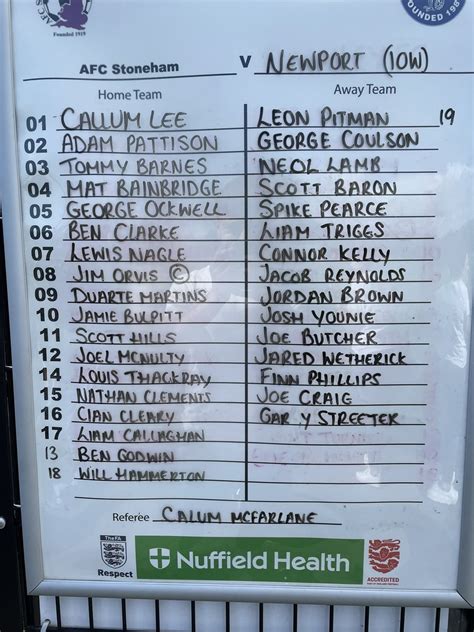 Founded 1919
FOUNDED 198
AFC Stoneham V NEWPORT (IOW)
Home Team Away Team
01 CALLUM LEE LEON PITMAN 19
02 ADAM PATTISON GEORGE COULSON
03 TOMMY BARNES NEOL LAMB
04 MAT BAINBRIDGE SCOTT BARON
05 GEORGE OCKWELL SPIKE PEARCE
06 BEN CLARKE LIAM TRIGGS
07 LEWIS NAGLE CONNOR KELLY
08 JIM ORVIS © JACOB REYNOLDS
09 DUARTE MARTINS JORDAN BROWN
10 JAMIE BULPITT JOSH YOUNIE
11 SCOTT HILLS JOE BUTCHER
12 JOEL MCNULTY JARED WETHERICK
14 LOUIS THACKRAY FINN PHILLIPS
15 NATHAN CLEMENTS JOE CRAIG
16 CIAN CLEARY GARY STREETER
17 LIAM CALLAGHAN
13 BEN GODWIN
18 WILL HAMMERTON
Referee CALUM MCFARLANE
TheFA
Respect
Nuffield Health
ACCREDITED